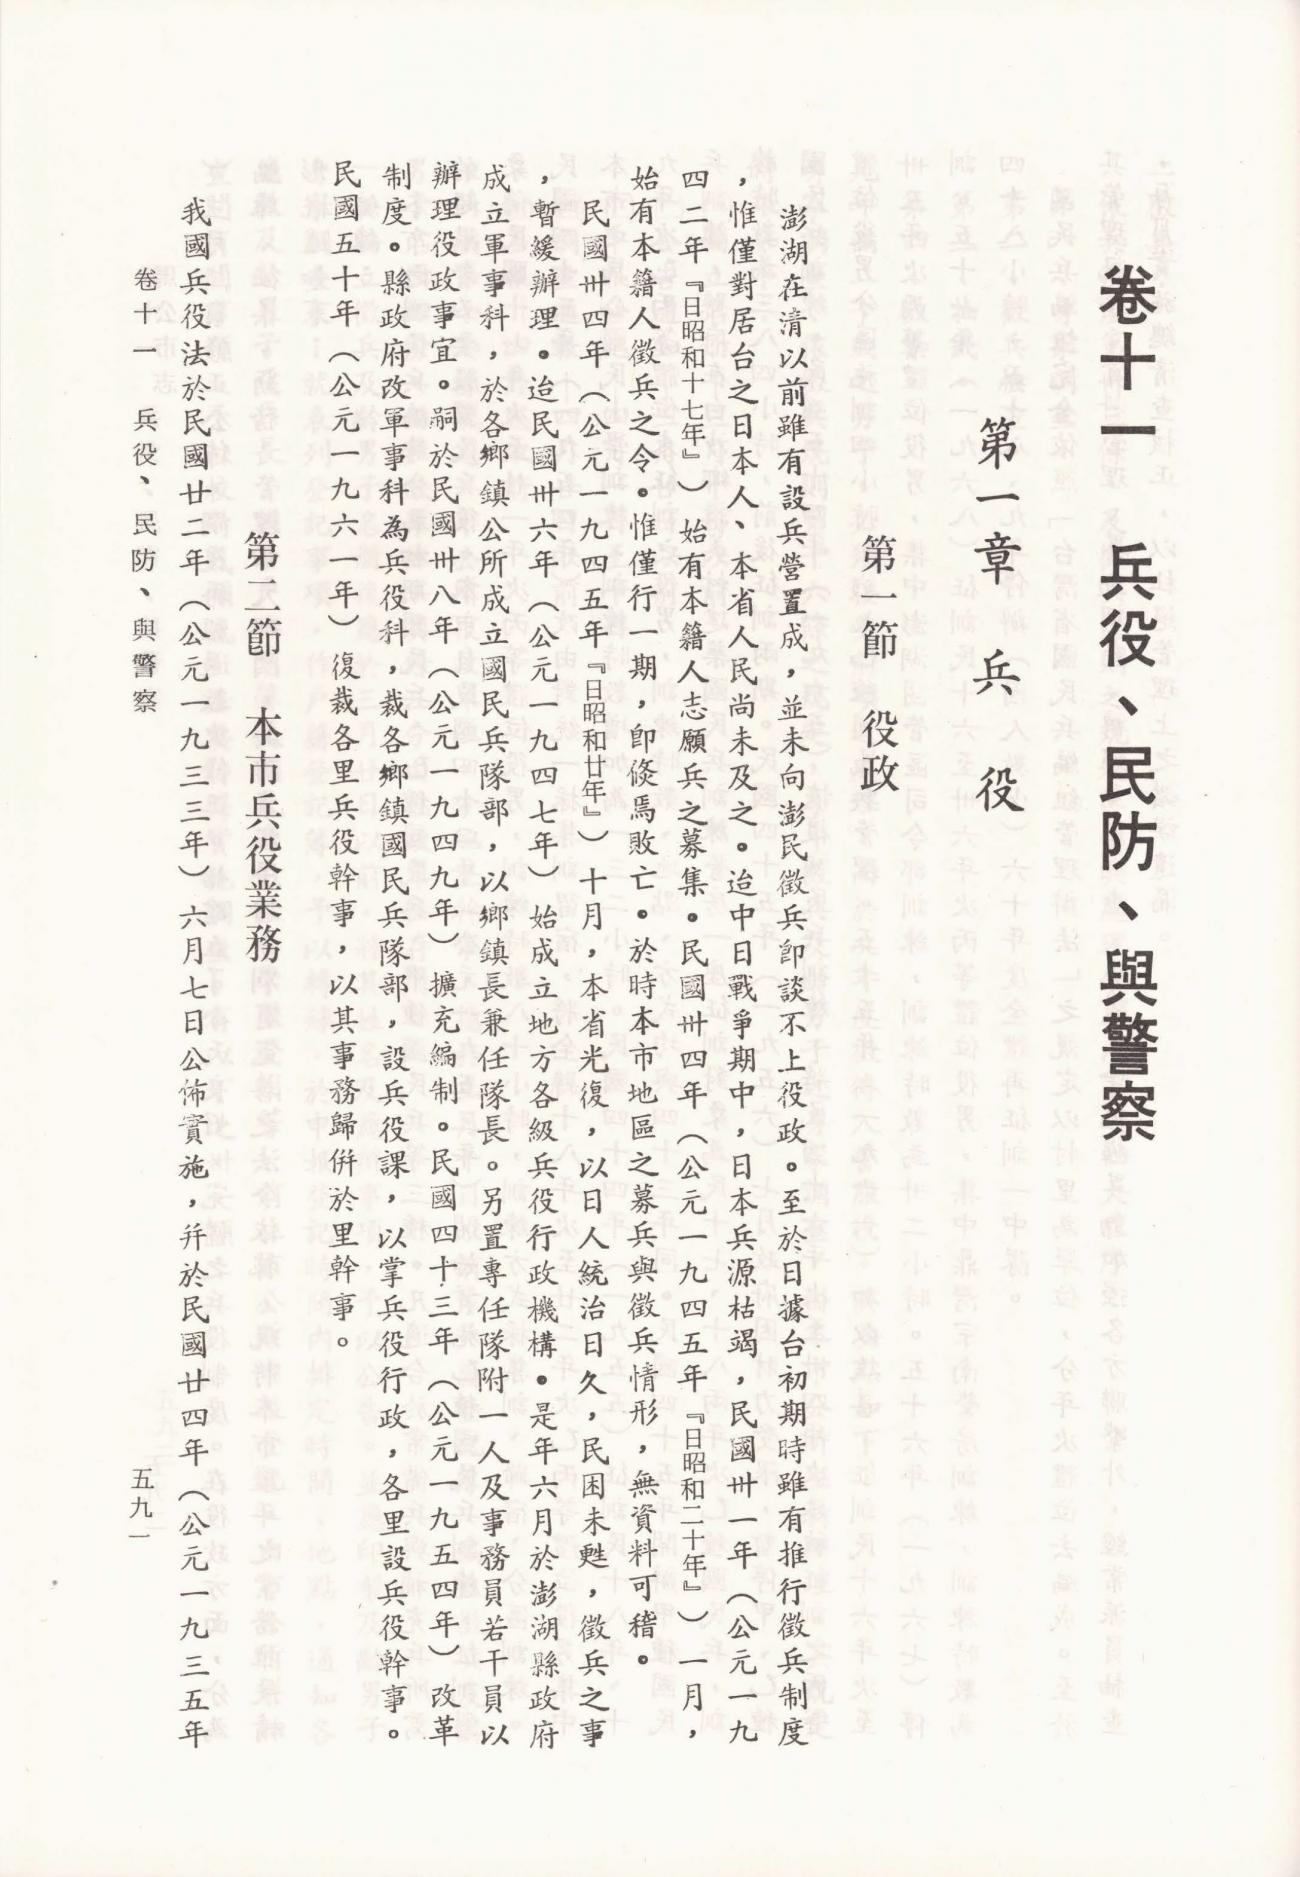 卷十一　兵役、民防、與警察
第一章　兵　役
第一節　役政
澎湖在清以前雖有設兵營置成，並未向澎民徵兵卽談不上役政。至於日據台初期時雖有推行徵兵制度
，惟僅對居台之日本人、本省人民尚未及之。迨中日戰爭期中，日本兵源枯竭，民國卅一年（公元一九
四二年『日昭和十七年』）始有本籍人志願兵之募集。民國卅四年（公元一九四五年『日昭和二十年』）一月，
始有本籍人徵兵之令。惟僅行一期，卽倐焉敗亡。於時本市地區之募兵與徵兵情形，無資料可稽。
民國卅四年（公元一九四五年『日昭和廿年』）十月，本省光復，以日人統治日久，民困未甦，徵兵之事
，暫緩辦理。迨民國卅六年（公元一九四七年）始成立地方各級兵役行政機構。是年六月於澎湖縣政府
成立軍事科，於各鄉鎮公所成立國民兵隊部，以鄉鎮長兼任隊長。另置專任隊附一人及事務員若干員以
辦理役政事宜。嗣於民國卅八年（公元一九四九年）擴充編制。民國四十三年（公元一九五四年）改革
制度。縣政府改軍事科為兵役科，裁各鄉鎮國民兵隊部，設兵役課，以掌兵役行政，各里設兵役幹事。
民國五十年（公元一九六一年）復裁各里兵役幹事，以其事務歸併於里幹事。
第二節　本市兵役業務
我國兵役法於民國廿二年（公元一九三三年）六月七日公佈實施，幷於民國廿四年（公元一九三五年
卷十一　兵役、民防、與警察
五九一